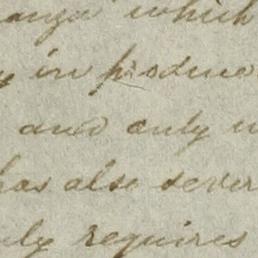 which
in produc
and only
has also sever
requires